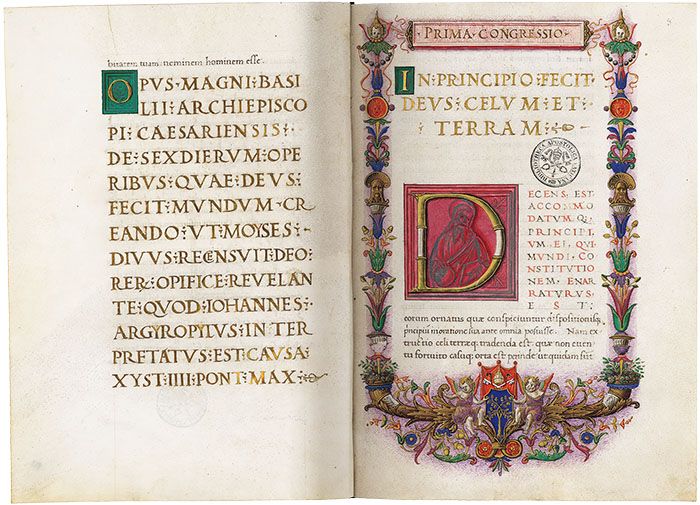 bitatem tuam neminem hominem esse.
OPVS·MAGNI·BASI
LII·ARCHIEPISCO
PI·CAESARIENSIS·
DE·SEXDIERVM·OPE
RIBVS·QVAE·DEVS·
FECIT·MVNDVM·CR
EANDO·VT·MOYSES·
DIVVS·RECENSVIT·DEO·
RER·OPIFICE·REVELAN
TE·QVOD·IOHANNES·
ARGYROPYLVS·INTER
PRETATVS·EST·CAVSA·
XYSTIIII·PONT·MAX·
PRIMA·CONGRESSIO
IN·PRINCIPIO·FECIT·
DEVS·CELVM·ET·
TERRAM·
DECENS·EST
ACCOMMO
DATVM·Q
PRINCIPI
VM·EI·QVI
MVNDI·CON
STITVTIO
NEM·ENAR
RATVRVS·
EST·
eorum ornatus quæ conspiciuntur dispositionisq
principii in oratione sua ante omnia posuisse. Nam ex
tructio celi terræq; tradenda est: quæ non euen
tu fortuito casuq; orta est perinde ut quidam fuit